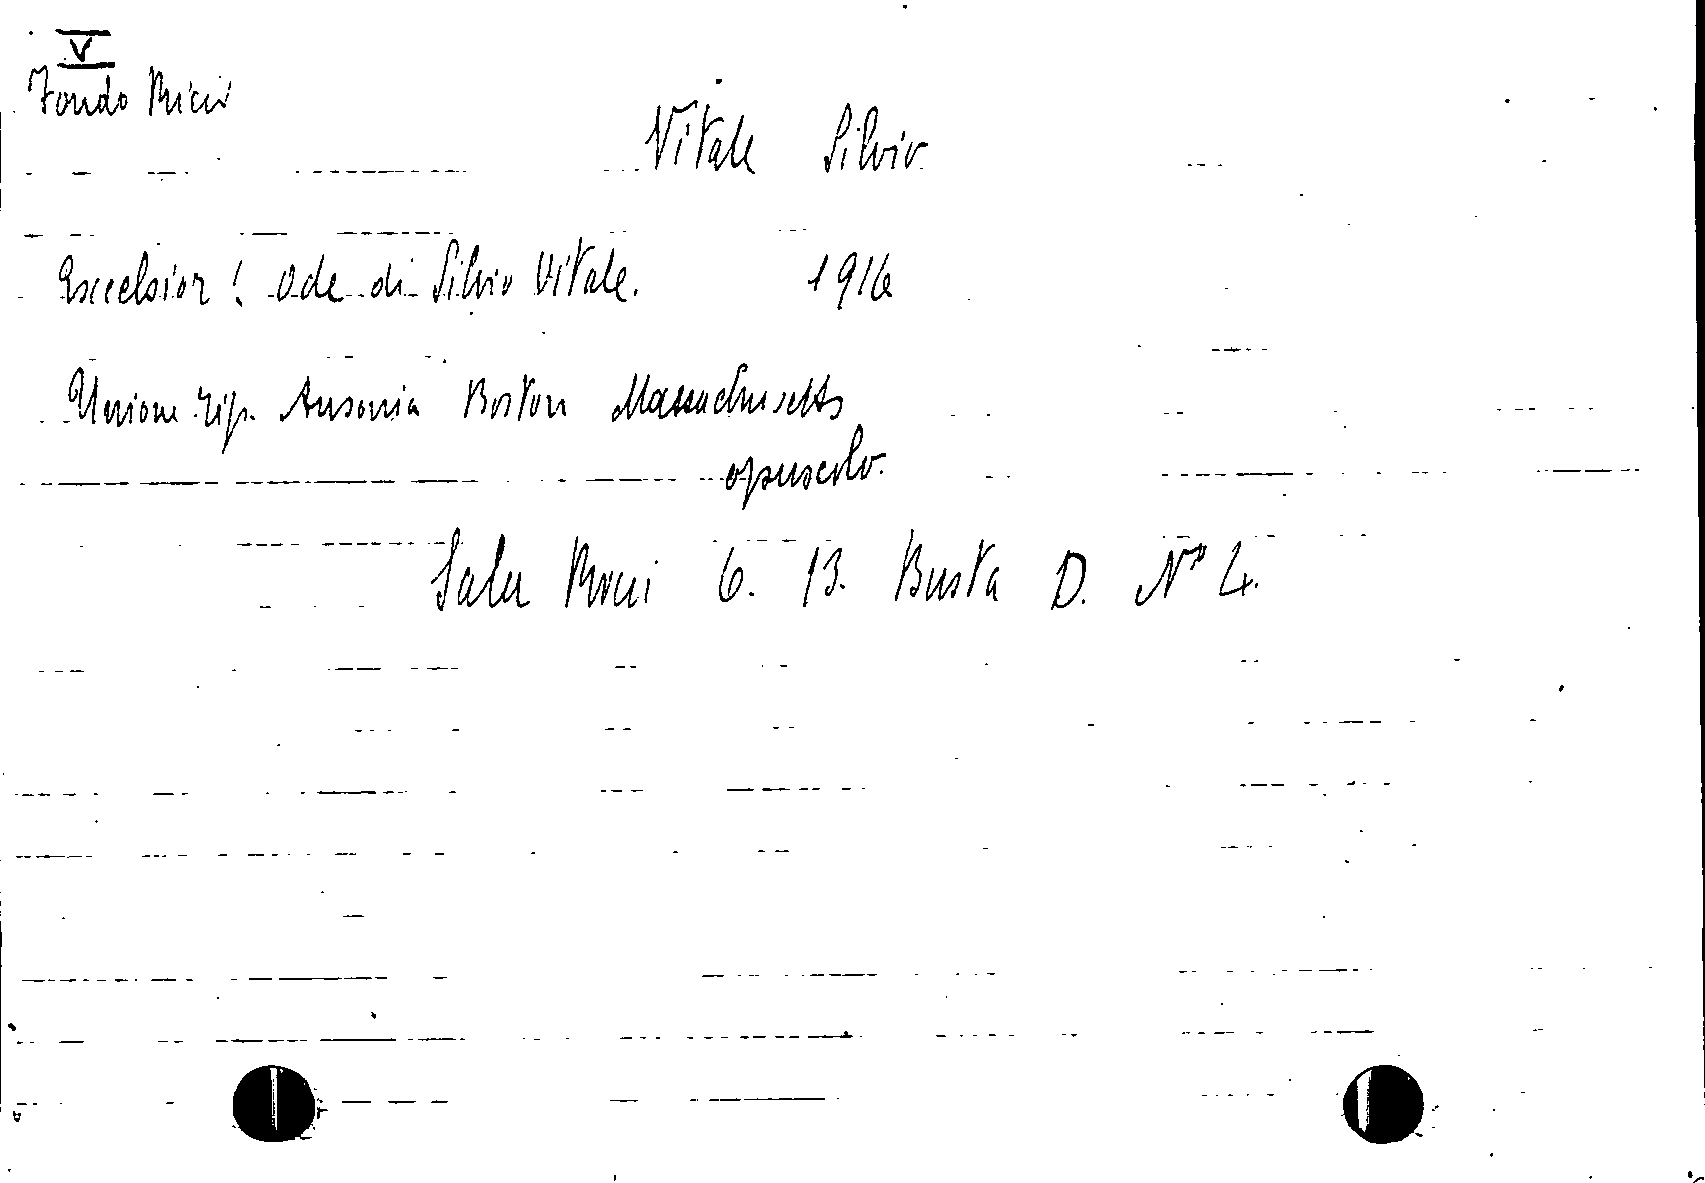 V
Fondo Ricci
Vitale Silvio
Excelsior! Ode di Silvio Vitale. 1916
Unione tip. Ausonia Boston Massachusetts
opuscolo.
Sala Ricci 6. 13. Busta D. N° 4.